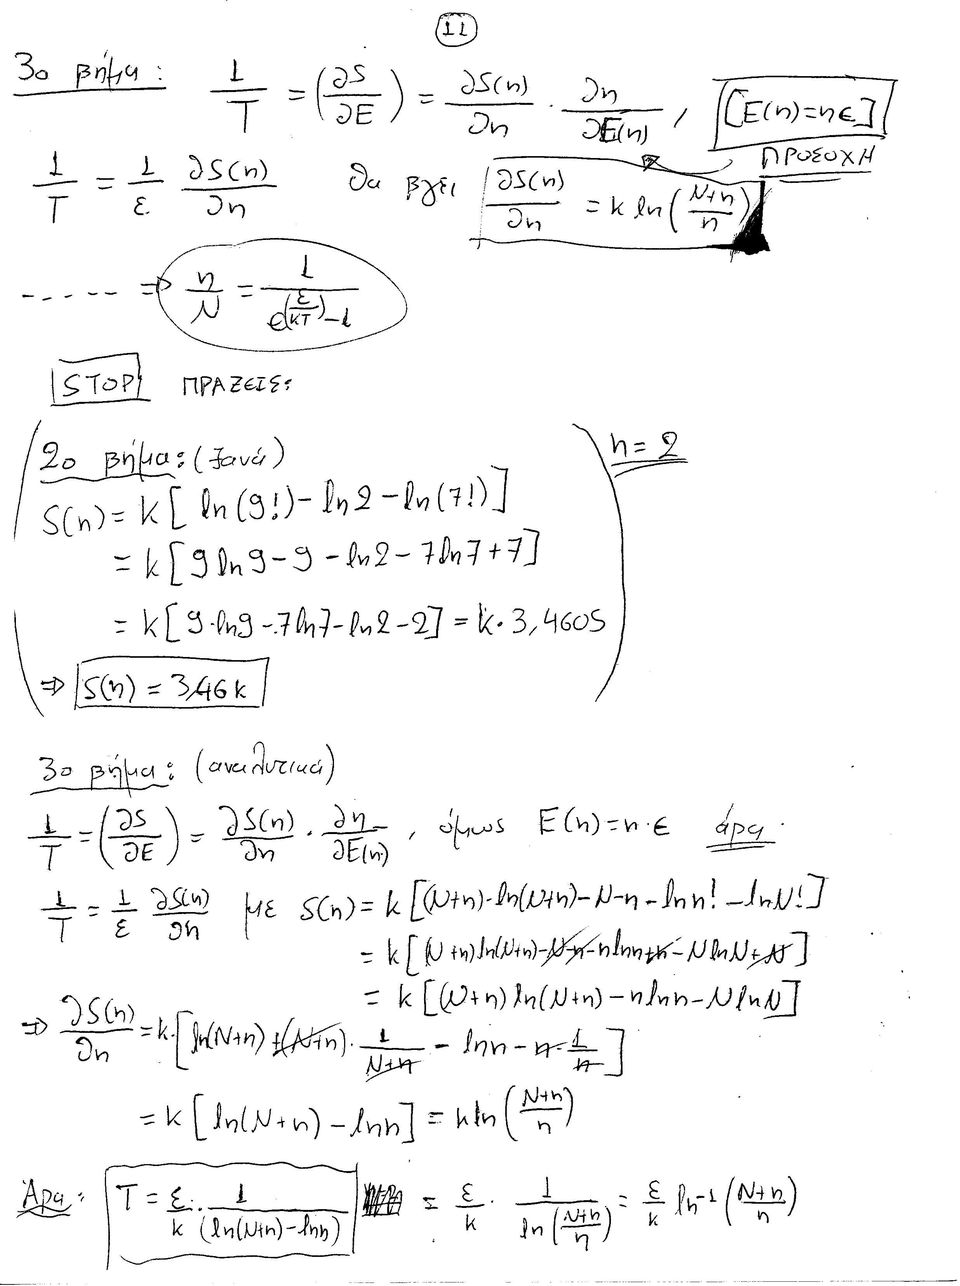 11
3ο βήμα: 1/T = (∂S/∂E) = ∂S(n)/∂n · ∂n/∂E(n), [E(n)=nϵ]
ΠΡΟΣΟΧΗ
1/T = 1/ε ∂S(n)/∂n θα βγει ∂S(n)/∂n = k ln((N+n)/n)
..... ⇒ n/N = 1/(e^(ε/kT) - 1)
STOP ΠΡΑΞΕΙΣ:
2ο βήμα: (ξανά) n = 2
S(n) = k[ln(9!) - ln2 - ln(7!)]
= k[9ln9 - 9 - ln2 - 7ln7 + 7]
= k[9·ln9 - 7ln7 - ln2 - 2] = k·3,4605
⇒ S(n) = 3,46k
3ο βήμα: (αναλυτικά)
1/T = (∂S/∂E) = ∂S(n)/∂n · ∂n/∂E(n), όμως E(n) = n·ϵ άρα
1/T = 1/ε ∂S(n)/∂n με S(n) = k[(N+n)·ln(N+n) - N - n - ln n! - ln N!]
= k[(N+n)ln(N+n) - N - n - n ln n + n - N ln N + N]
= k[(N+n)ln(N+n) - n ln n - N ln N]
⇒ ∂S(n)/∂n = k·[ln(N+n) + (N+n)·1/(N+n) - ln n - n·1/n]
= k[ln(N+n) - ln n] = k ln((N+n)/n)
Άρα: T = ε/k · 1/(ln(N+n) - ln n) = ε/k · 1/ln((N+n)/n) = ε/k ln⁻¹((N+n)/n)